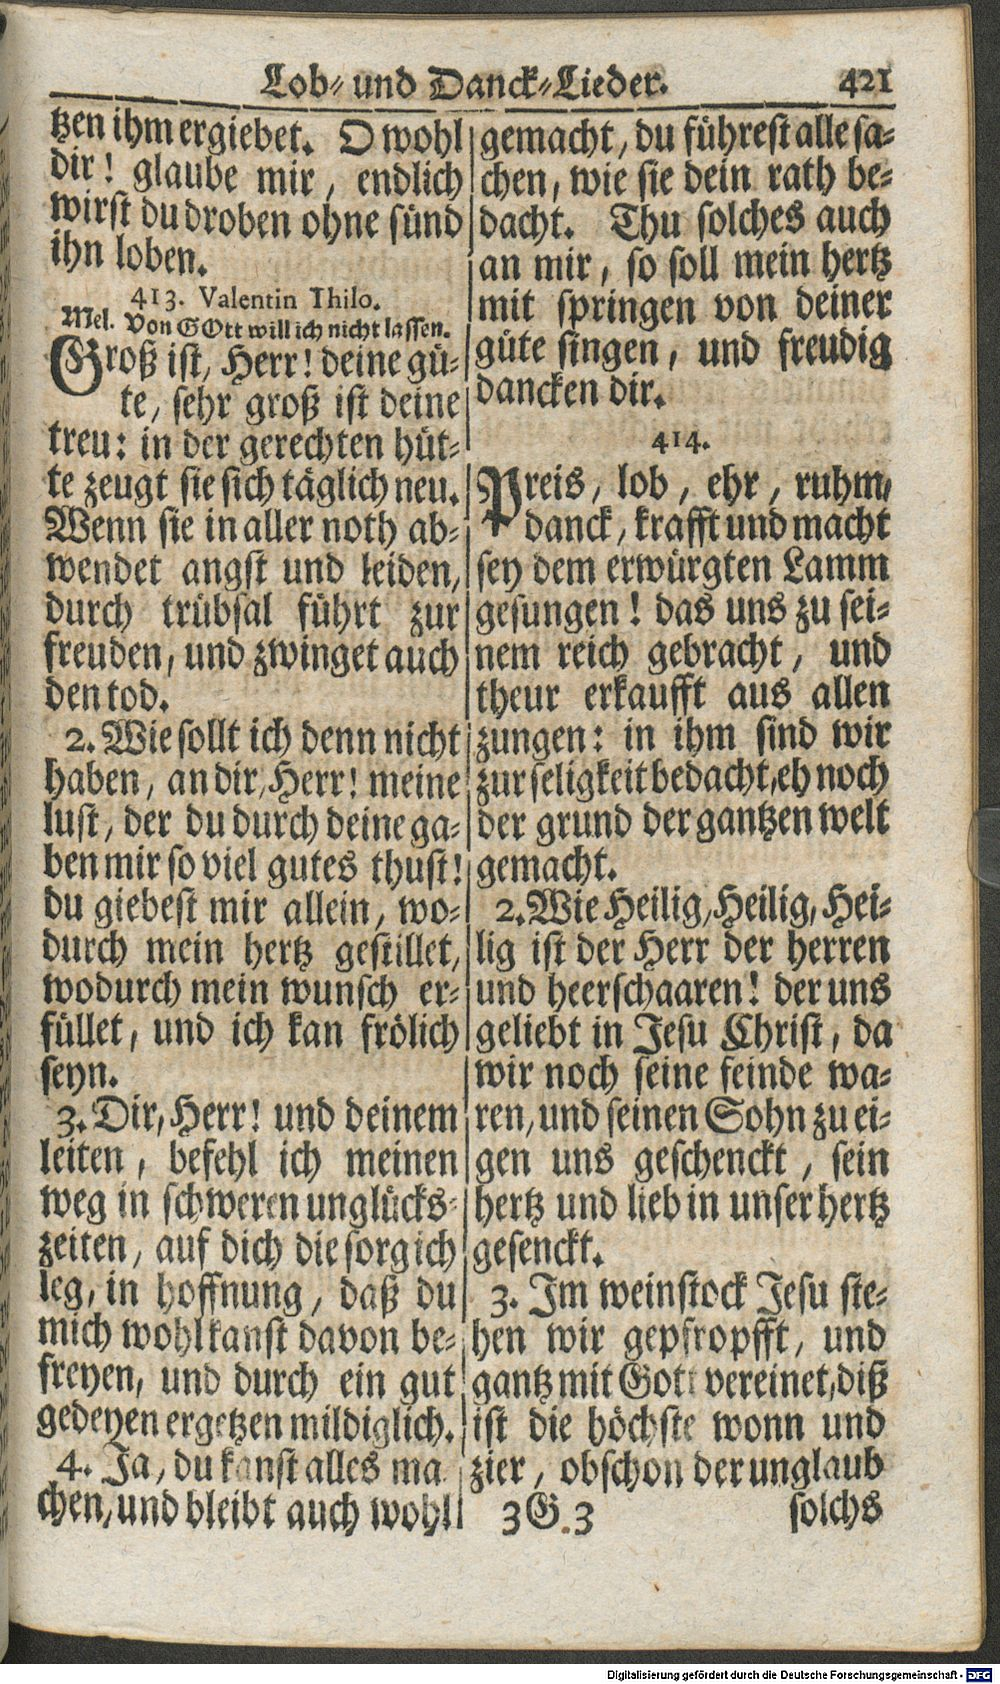 Lob- und Danck-Lieder. 421
tzen ihm ergiebet. O wohl
dir! glaube mir, endlich
wirst du droben ohne sünd
ihn loben.
413. Valentin Thilo.
Mel. Von GOtt will ich nicht lassen.
Groß ist, Herr! deine gü-
te, sehr groß ist deine
treu: in der gerechten hüt-
te zeugt sie sich täglich neu.
Wenn sie in aller noth ab-
wendet angst und leiden,
durch trübsal führt zur
freuden, und zwinget auch
den tod.
2. Wie sollt ich denn nicht
haben, an dir, Herr! meine
lust, der du durch deine ga-
ben mir so viel gutes thust!
du giebest mir allein, wo-
durch mein hertz gestillet,
wodurch mein wunsch er-
füllet, und ich kan frölich
seyn.
3. Dir, Herr! und deinem
leiten, befehl ich meinen
weg in schweren unglücks-
zeiten, auf dich die sorg ich
leg, in hoffnung, daß du
mich wohl kanst davon be-
freyen, und durch ein gut
gedeyen ergetzen mildiglich.
4. Ja, du kanst alles ma
chen, und bleibt auch wohl
gemacht, du führest alle sa-
chen, wie sie dein rath be-
dacht. Thu solches auch
an mir, so soll mein hertz
mit springen von deiner
güte singen, und freudig
dancken dir.
414.
Preis, lob, ehr, ruhm,
danck, krafft und macht
sey dem erwürgten Lamm
gesungen! das uns zu sei-
nem reich gebracht, und
theur erkaufft aus allen
zungen: in ihm sind wir
zur seligkeit bedacht, eh noch
der grund der gantzen welt
gemacht.
2. Wie Heilig, Heilig, Hei-
lig ist der Herr der herren
und heerschaaren! der uns
geliebt in Jesu Christ, da
wir noch seine feinde wa-
ren, und seinen Sohn zu ei-
gen uns geschenckt, sein
hertz und lieb in unser hertz
gesenckt.
3. Im weinstock Jesu ste-
hen wir gepfropfft, und
gantz mit Gott vereinet, diß
ist die höchste wonn und
zier, obschon der unglaub
3G.3 solchs
Digitalisierung gefördert durch die Deutsche Forschungsgemeinschaft - DFG